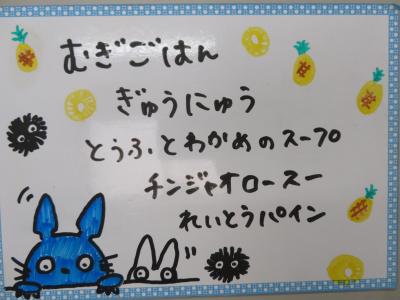 むぎごはん
ぎゅうにゅう
とうふとわかめのスープ
チンジャオロースー
れいとうパイン